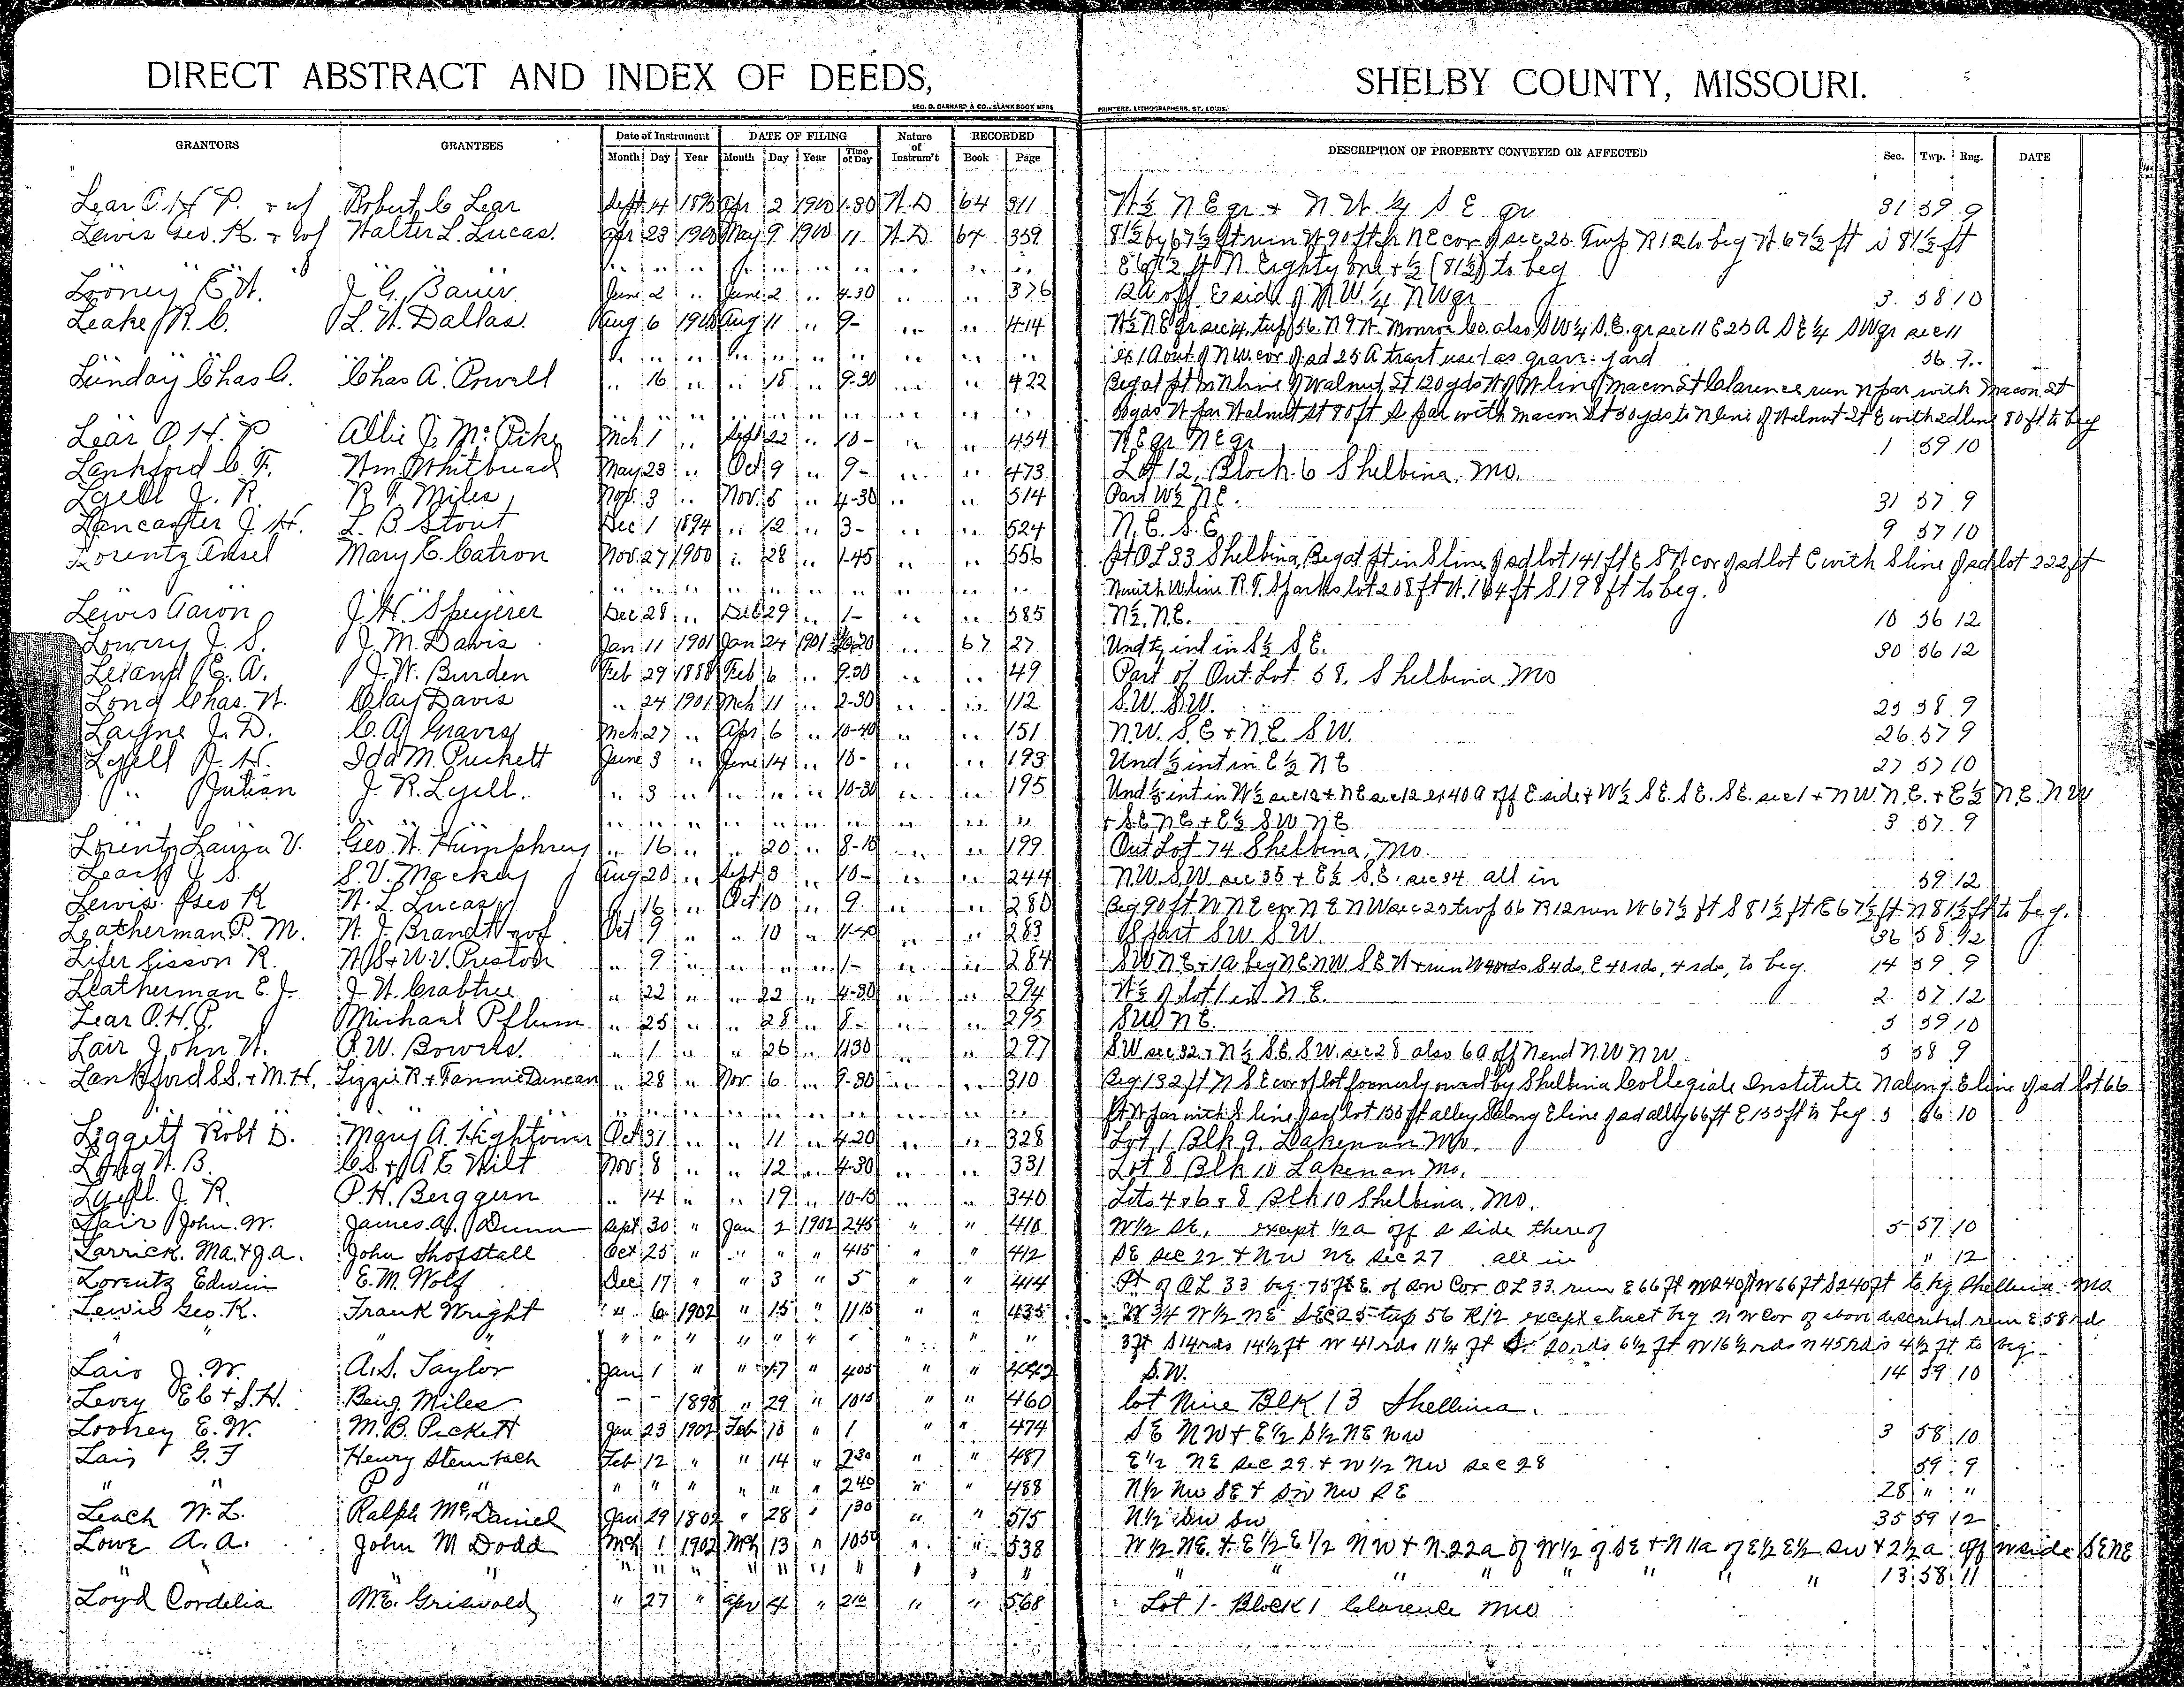 DIRECT ABSTRACT AND INDEX OF DEEDS, SHELBY COUNTY, MISSOURI.
SEO. D. BARNARD & CO., BLANK BOOK MFRS PRINTERS, LITHOGRAPHERS, ST. LOUIS.
GRANTORS GRANTEES Date of Instrument DATE OF FILING Nature of Instrum't RECORDED DESCRIPTION OF PROPERTY CONVEYED OR AFFECTED Sec. Twp. Rng. DATE
Month Day Year Month Day Year Time of Day Book Page
Lear O. H. P. + wf Robert C Lear Sept 4 1895 Apr 2 1900 1-30 W.D 64 311 W½ N E qr + N W. ¼ S E qr 31 59 9
Lewis Geo. K. + wf Walter L. Lucas. Apr 23 1900 May 9 1900 11 W.D. 64 359 81½ by 67½ ft run W 90 ft fr NE cor of sec 25 Twp R 12 to beg W 67½ ft S 81½ ft
" " " " " " " " " " E 67½ ft N. Eighty one + ½ (81½) to beg
Looney E W. J. G. Bauer. June 2 " June 2 " 4-30 " " 376 12 A off E side of N W. ¼ NW qr 3. 58 10
Leake R. C. L. W. Dallas. Aug 6 1900 Aug 11 " 9- " " 414 W½ N E qr sec 14, twp 56. R 9 W. Monroe Co. also SW ¼ S.E. qr sec 11 E 25 A S E ¼ SW qr sec 11
" " " " " " " " " " ex 1 A out of N W. cor of sd 25 A tract used as grave-yard 56 9 ..
Lunday Chas C. Chas A. Powell " 16 " " 18 " 9-30 " " 422 Beg at pt in N line of Walnut St 120 yds W of W line Macon St Clarence run N par with Macon St
" " " " " " " " " " 50 yds W par Walnut St 80 ft S par with Macon St 50 yds to N line of Walnut St E with sd line 80 ft to beg
Lear O. H. P Allie J. McPike Mch 1 " Sept 22 " 10- " " 454 N E qr N E qr 1 59 10
Lankford C. F. Wm Whitbread May 23 " Oct 9 " 9- " " 473 Lot 12, Block 6 Shelbina, Mo.
Lyell J. R. R. F. Miles Nov. 3 " Nov. 5 " 4-30 " " 514 Part W½ N E. 31 57 9
Lancaster J. H. L. B. Stout Dec 1 1894 " 12 " 3- " " 524 N. E. S. E 9 57 10
Lorentz Ansel Mary C. Catron Nov. 27 1900 " 28 " 1-45 " " 556 pt O L 33 Shelbina, Beg at pt in S line of sd lot 141 ft E S W cor of sd lot E with S line of sd lot 222 ft
" " " " " " " " " " N with W line R. F. Sparks lot 208 ft W. 164 ft S 198 ft to beg.
Lewis Aaron J. H. Speyerer Dec 28 " Dec 29 " 1- " " 585 N½, N.E. 10 56 12
Lowery J. S. J. M. Davis Jan 11 1901 Jan 24 1901 " 67 27 Und ½ int in S½ S.E. 30 56 12
Leland E. A. J. W. Burden Feb 29 1888 Feb 6 " 9-30 " " 49 Part of Out Lot 58, Shelbina, Mo
Long Chas. W. Clay Davis " 24 1901 Mch 11 " 2-30 " " 112 S.W. S.W. 23 58 9
Layne J. D. C. A. Graves Mch 27 " Apr 6 " 10-40 " " 151 N.W. S.E + N.E. S W. 26 57 9
Lyell W. H. Ida M. Puckett June 3 " June 14 " 10- " " 193 Und ½ int in E ½ N E 27 57 10
" Julian J. R. Lyell. " 3 " " " " 10-30 " " 195 Und ½ int in W½ sec 12 + NE sec 12 ex 40 A off E side + W½ S.E. S.E. S.E. sec 1 + N W. N. E. + E½ N.E. N W
" " " " " " " " " " + S.E N E + E½ S W N E 3 57 9
Lorentz Lauza V. Geo. W. Humphrey " 16 " " 20 " 8-10 " " 199 Out Lot 74 Shelbina, Mo.
Leach J. S. S. V. Mackey Aug 20 " Sept 3 " 10- " " 244 N.W. S.W sec 35 + E½ S.E. sec 34 all in 59 12
Lewis Geo K W. L. Lucas " 16 " Oct 10 " 9 " " 280 Beg 90 ft W N E cor N E N W sec 25 twp 56 R 12 run W 67½ ft S 81½ ft E 67½ ft N 81½ ft to beg.
Leatherman P. M. W. J. Brandt Oct 9 " " 10 " 11-40 " " 283 part S W. S W. 36 58 12
Lifer Gisson R. W S + W. V. Preston " 9 " " " " 1- " " 284 SW N E + 1 a beg N E N W. S E W + run W 40 rds. S 4 ds, E 40 rds, 4 rds, to beg. 14 59 9
Leatherman E. J. J. W. Crabtree " 22 " " 22 " 4-30 " " 294 W½ of lot 1 in N E. 2 57 12
Lear O. H. P. Michael Pflum " 25 " " 28 " 8- " " 295 SW N E. 5 59 10
Lair John W. P. W. Bowers. " 1 " " 26 " 1130 " " 297 S W sec 32 + N½ S.E. S W. sec 28 also 6 a off N end N.W N W 5 58 9
Lankford S.S. + M. H. Lizzie R. + Fannie Duncan " 28 " Nov 6 " 9-30 " " 310 Beg 132 ft N S E cor of lot formerly owned by Shelbina Collegiate Institute N along E line of sd lot 66
" " " " " " " " " " ft W par with S line of sd lot 155 ft alley S along E line of sd ally 66 ft E 155 ft to beg. 5 56 10
Liggett Robt D. Mary A. Hightower Oct 31 " " 11 " 4-20 " " 328 Lot 1 Blk 9. Lakenan Mo.
Long W. B. C. S. + A E Wilt Nov 8 " " 12 " 4-30 " " 331 Lot 8 Blk 10 Lakenan Mo.
Lyell. J. R. P. H. Berggern " 14 " " 19 " 10-15 " " 340 Lots 4 + 6 + 8 Blk 10 Shelbina, Mo.
Lair John. W. James. A. Dunn Sept 30 " Jan 2 1902 245 " " 410 W½ SE, except ½ a off S side thereof 5 57 10
Larrick. Ma. + J.a. John Shofstall Oct 25 " " " " 415 " " 412 SE sec 22 + NW NE sec 27 all in " 12
Lorentz Edwin E. M. Wolf Dec 17 " " 3 " 5 " " 414 Pt of OL 33 beg 75 ft E. of SW Cor OL 33 run E 66 ft N 240 ft W 66 ft S 240 ft to beg Shelbina. Mo
Lewis Geo. K. Frank Wright " 6 1902 " 15 " 1115 " " 435 W ¾ W½ NE SEC 25 twp 56 R 12 except a tract beg N W cor of above described run E 58 rd
" " " " " " " " " " 3 ft S 14 rds 14½ ft W 41 rds 11¼ ft S 20 rds 6½ ft W 16½ rds N 45 rds 4½ ft to beg
Lair J. W. A. S. Taylor Jan 1 " " 17 " 405 " " 442 S. W. 14 59 10
Levey E C + S. H. Benj. Miles - - 1898 " 29 " 1015 " " 460 lot Nine BLK 13 Shelbina.
Looney E. W. M. B. Pickett Jan 23 1902 Feb 10 " 1 " " 474 SE NW + E½ S½ NE NW 3 58 10
Lair G. F Henry Steinbach Feb 12 " " 14 " 230 " " 487 E½ NE sec 29. + W½ NW sec 28 59 9
" " " " " " " " 240 " " 488 N½ NW SE + SW NW SE 28 " "
Leach W. L. Ralph McDaniel Jan 29 1802 " 28 " 130 " " 515 N½ SW SW 35 59 12
Lowe A. A. John M Dodd Mch 1 1902 Mch 13 " 1050 " " 538 W½ NE. + E½ E½ NW + N. 22 a of W½ of SE + N 11 a of E½ E½ SW + 2½ a off W side SENE
" " " " " " " " " " " " " " " " 13 58 11
Loyd Cordelia M. E. Griswold " 27 " Apr 4 " 210 " " 568 Lot 1 - Block 1 Clarence Mo